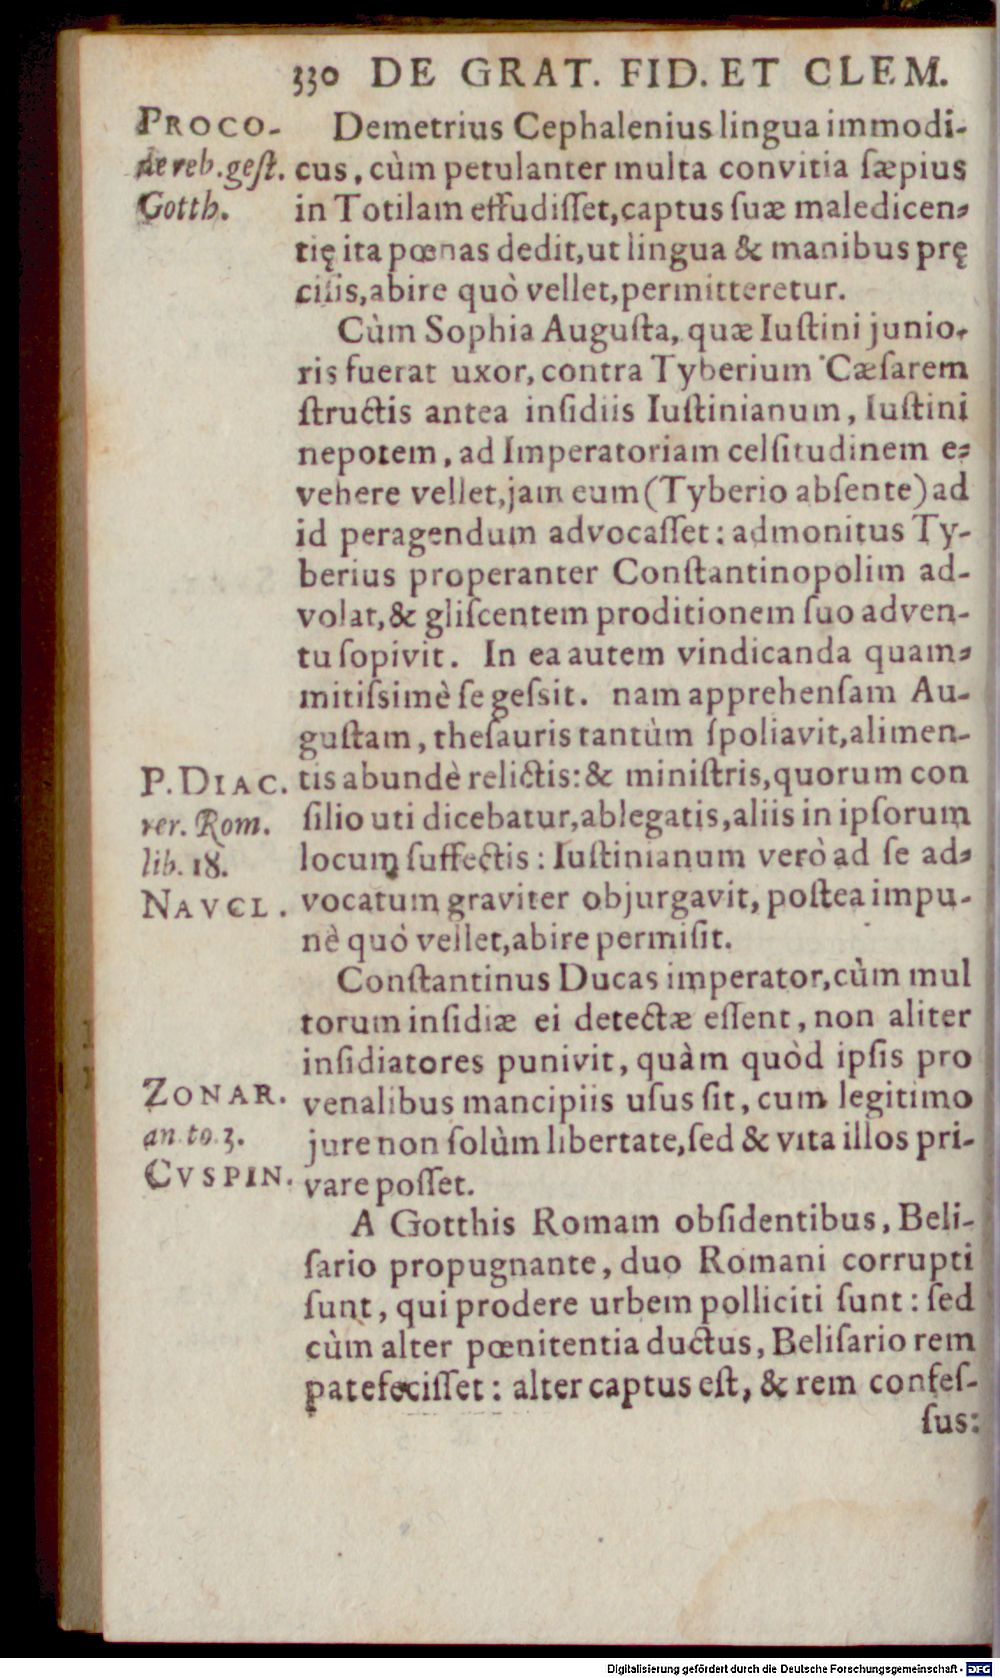 330 DE GRAT. FID. ET CLEM.
PROCO-
de reb. geſt.
Gotth.
Demetrius Cephalenius lingua immodi-
cus, cùm petulanter multa convitia ſæpius
in Totilam effudiſſet, captus ſuæ maledicen-
tię ita pœnas dedit, ut lingua & manibus prę
ciſis, abire quò vellet, permitteretur.
Cùm Sophia Auguſta, quæ Iuſtini junio-
ris fuerat uxor, contra Tyberium Cæſarem
ſtructis antea inſidiis Iuſtinianum, Iuſtini
nepotem, ad Imperatoriam celſitudinem e-
vehere vellet, jam eum (Tyberio abſente) ad
id peragendum advocaſſet: admonitus Ty-
berius properanter Conſtantinopolim ad-
volat, & gliſcentem proditionem ſuo adven-
tu ſopivit. In ea autem vindicanda quam-
mitiſsimè ſe geſsit. nam apprehenſam Au-
guſtam, theſauris tantùm ſpoliavit, alimen-
P. DIAC.
rer. Rom.
lib. 18.
NAVCL.
tis abundè relictis: & miniſtris, quorum con
ſilio uti dicebatur, ablegatis, aliis in ipſorum
locum ſuffectis: Iuſtinianum verò ad ſe ad-
vocatum graviter objurgavit, poſtea impu-
nè quò vellet, abire permiſit.
Conſtantinus Ducas imperator, cùm mul
torum inſidiæ ei detectæ eſſent, non aliter
inſidiatores punivit, quàm quòd ipſis pro
ZONAR.
an. to. 3.
CVSPIN.
venalibus mancipiis uſus ſit, cum legitimo
jure non ſolùm libertate, ſed & vita illos pri-
vare poſſet.
A Gotthis Romam obſidentibus, Beli-
ſario propugnante, duo Romani corrupti
ſunt, qui prodere urbem polliciti ſunt: ſed
cùm alter pœnitentia ductus, Beliſario rem
patefeciſſet: alter captus eſt, & rem confeſ-
ſus:
Digitalisierung gefördert durch die Deutsche Forschungsgemeinschaft - DFG